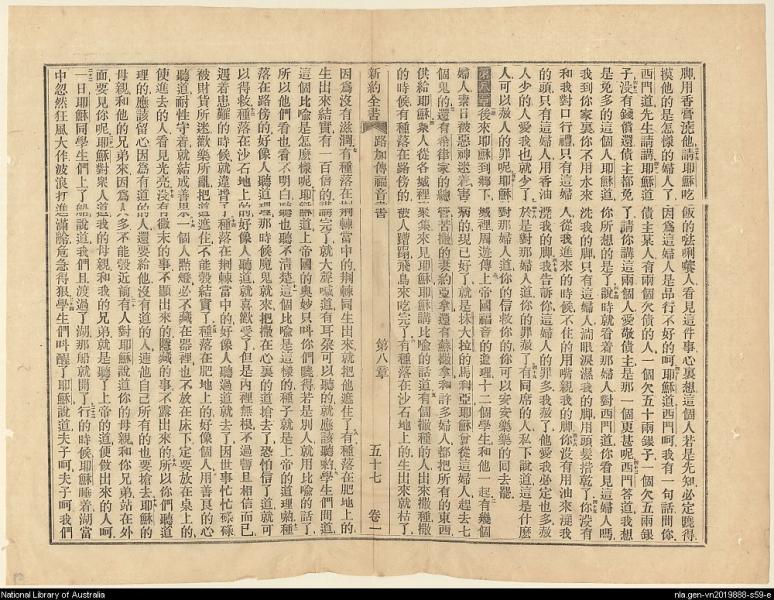 脚、用香膏澆他、請耶穌吃飯的𠵽唎㘔人看見這件事、心裏想這個人若是先知、必定曉得
摸他的是怎樣的婦人了、因爲這婦人是品行不好的呵、耶穌道、西門呵、我有一句話問你、
西門道、先生請講、耶穌道、債主某人、有兩個欠債的人、一個欠五十兩銀子、一個欠五兩銀
子、沒有錢償還、債主都免了、請你講這兩個人、愛敬債主是那一個更甚呢、西門答道、我想
是免多的這個人、耶穌道、你所想的是了、說時就看着那婦人、對西門道、你看見這婦人嗎、
我到你家裏、你不用水來洗我的脚、只有這婦人、淌眼淚濕我的脚、用頭髮揩乾了、你沒有
和我對口行禮、只有這婦人從我進來的時候、不住的用嘴親我的脚、你沒有用油來澆我
的頭、只有這婦人用香油澆我的脚、我告訴你、這婦人的罪多、我赦了、他愛我必定也多、赦
人少的人愛我也就少了、於是對那婦人道、你的罪赦了、有同席的人私下說道、這是什麼
人、可以赦人的罪呢、耶穌對那婦人道、你的信救你的、你可以安安樂樂的回去罷、
第八章 後來耶穌到鄉下城裡、周遊傳上帝國福音的道理、十二個學生和他一起、有幾個
婦人素日被惡神迷着、害病的、現已好了、就是抹大拉的馬利亞、耶穌曾從這婦人趕去七
個鬼的、還有希律家的總管苦撒的妻約亞拿、還有蘇撒拿、和許多婦人、都把所有的東西
供給耶穌、衆人從各城裡聚集來見耶穌、耶穌講比喻的話道、有個撒種的人出來撒種、撒
的時候、有種落在路傍的、被人蹧蹋、飛鳥來吃完了、有種落在沙石地上的、生出來就枯了、
新約全書 路加傳福音書 第八章 五十七 卷一
因爲沒有滋潤、有種落在荆棘當中的、荆棘同生出來、就把他遮住了、有種落在肥地上的、
生出來結實、有一百倍的、講完了、就大聲喊道、有耳朶可以聽的、就應該聽喲、學生們問道、
這個比喻是怎麼樣呢、耶穌道、上帝國的奥妙只呌你們曉得、若是別人、就用比喻的話了、
所以他們看也看不明白、聽也聽不清楚、這個比喻是這樣的、種子就是上帝的道理、撒種
落在路傍的、好像人聽道理、那時候魔鬼就來、把撒在心裏的道搶去了、恐怕信了道、就可
以得救、種落在沙石地上的、好像人聽道就喜歡受了、但是内裡無根、不過暫且相信而已、
遇着患難的時候、就違背了、種落在荆棘當中的、好像人聽過道就去了、因世事忙忙碌碌、
被財貨所迷、歡樂所亂、把道遮住、不能彀結實了、種落在肥地上的、好像個人用善良的心
聽道、耐性守着、就結成善果、一個人點燈、必不藏在器裡、也不放在床下、定要放在桌上的、
使進去的人看見光亮、沒有微末的事不顯出來的、隱藏的事不露出來的、所以你們聽道
理的、應該留心、因爲有道的人、還要給他、沒有道的人、連他自己所有的、也要搶去、耶穌的
母親和他的兄弟來、因爲人多不能彀近前、有人對耶穌說道、你的母親和你兄弟站在外
面、要見你呢、耶穌對衆人道、我的母親和我的兄弟、就是聽了上帝的道、便做出來的人呵、
一日耶穌同學生們上了船、說道、我們且渡過了湖、那船就開了、行的時候、耶穌睡着、湖當
中忽然狂風大作、波浪打進滿艙、危急得狠、學生們呌醒了耶穌、說道、夫子呵、夫子呵、我們
National Library of Australia
nla.gen-vn2019888-s59-e